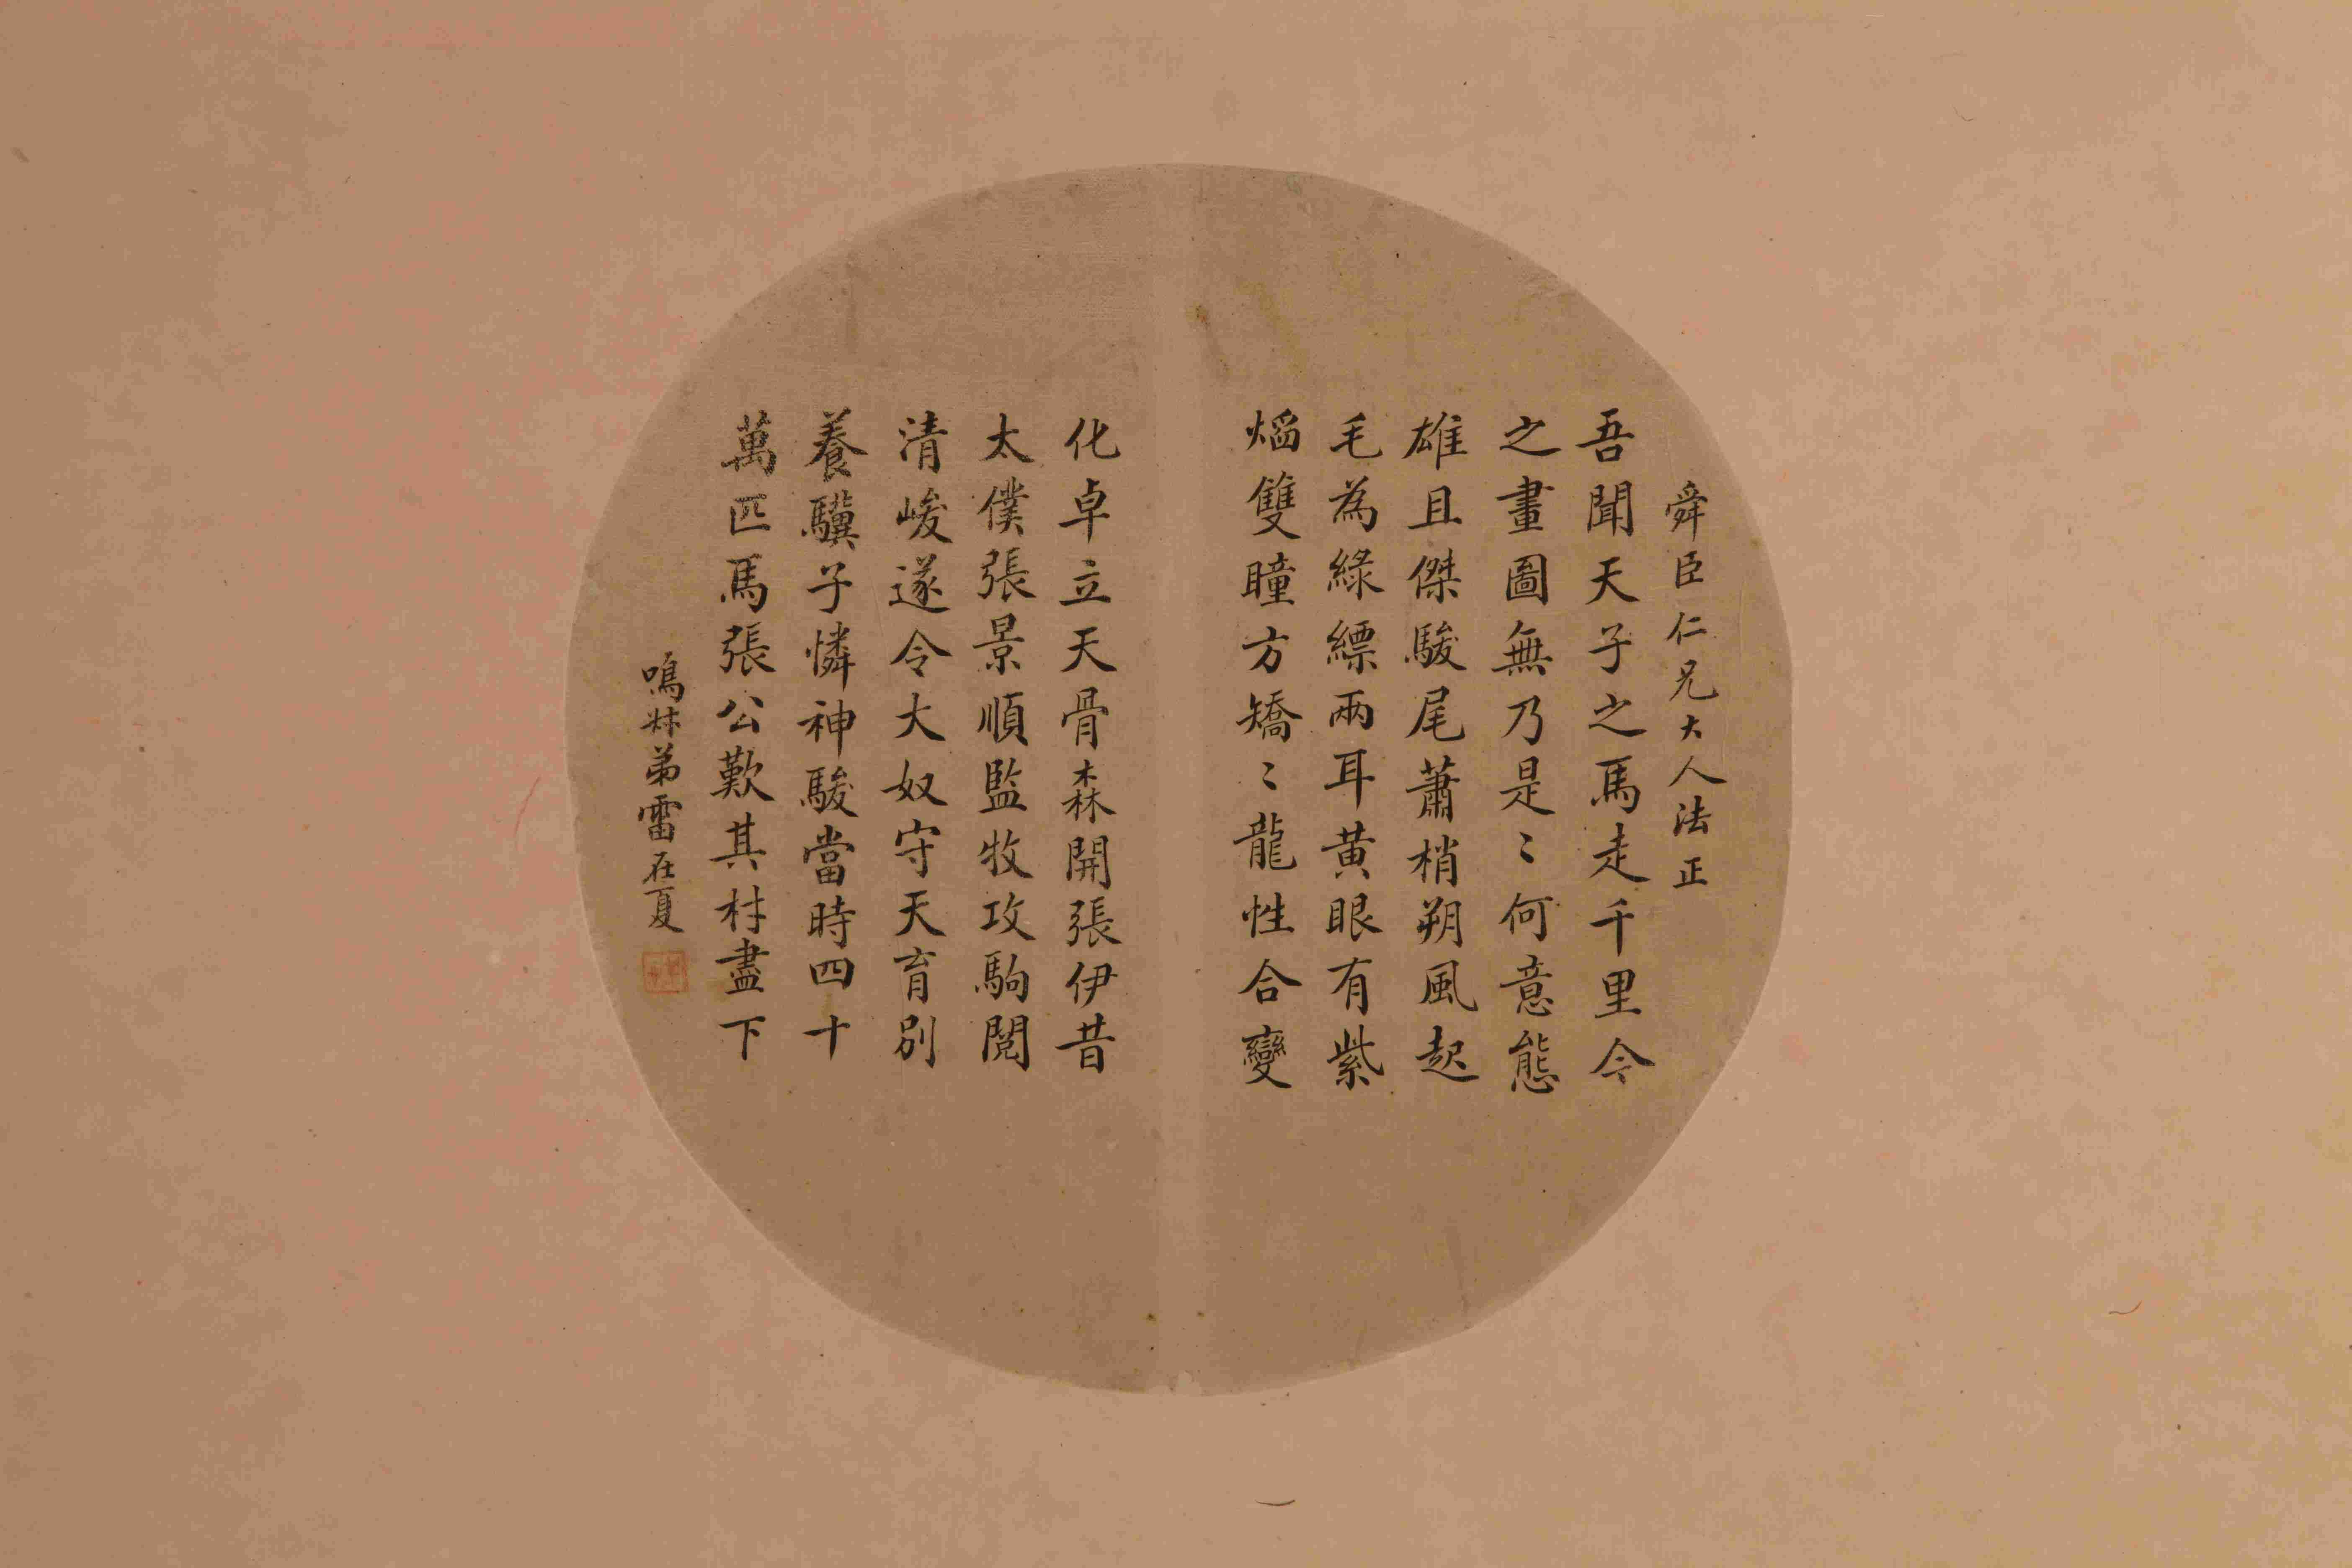 舜臣仁兄大人法正
吾聞天子之馬走千里今
之畫圖無乃是〻何意態
雄且傑駿尾蕭梢朔風起
毛為綠縹兩耳黃眼有紫
熖雙瞳方矯〻龍性合變
化卓立天骨森開張伊昔
太僕張景順監牧攻駒閱
清峻遂令大奴守天育別
養驥子憐神駿當時四十
萬匹馬張公歎其材盡下
鳴弟雷在夏